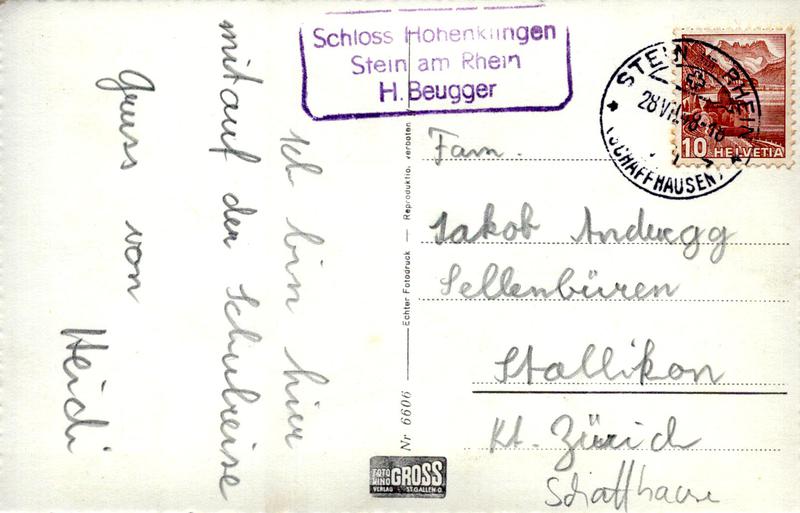 Ich bin hier
mitauf der Schulreise
Gruss von
Heidi
Schloss Hohenklingen
Stein am Rhein
H. Beugger
STEIN RHEIN
28 VII 8-18
(SCHAFFHAUSEN)
10 HELVETIA
Fam.
Jakob Anderegg
Sellenbüren
Stallikon
Kt. Zürich
Schaffhause
Nr 6606 Echter Fotodruck — Reproduktio. verboten
FOTO KINO GROSS
VERLAG ST. GALLEN O.